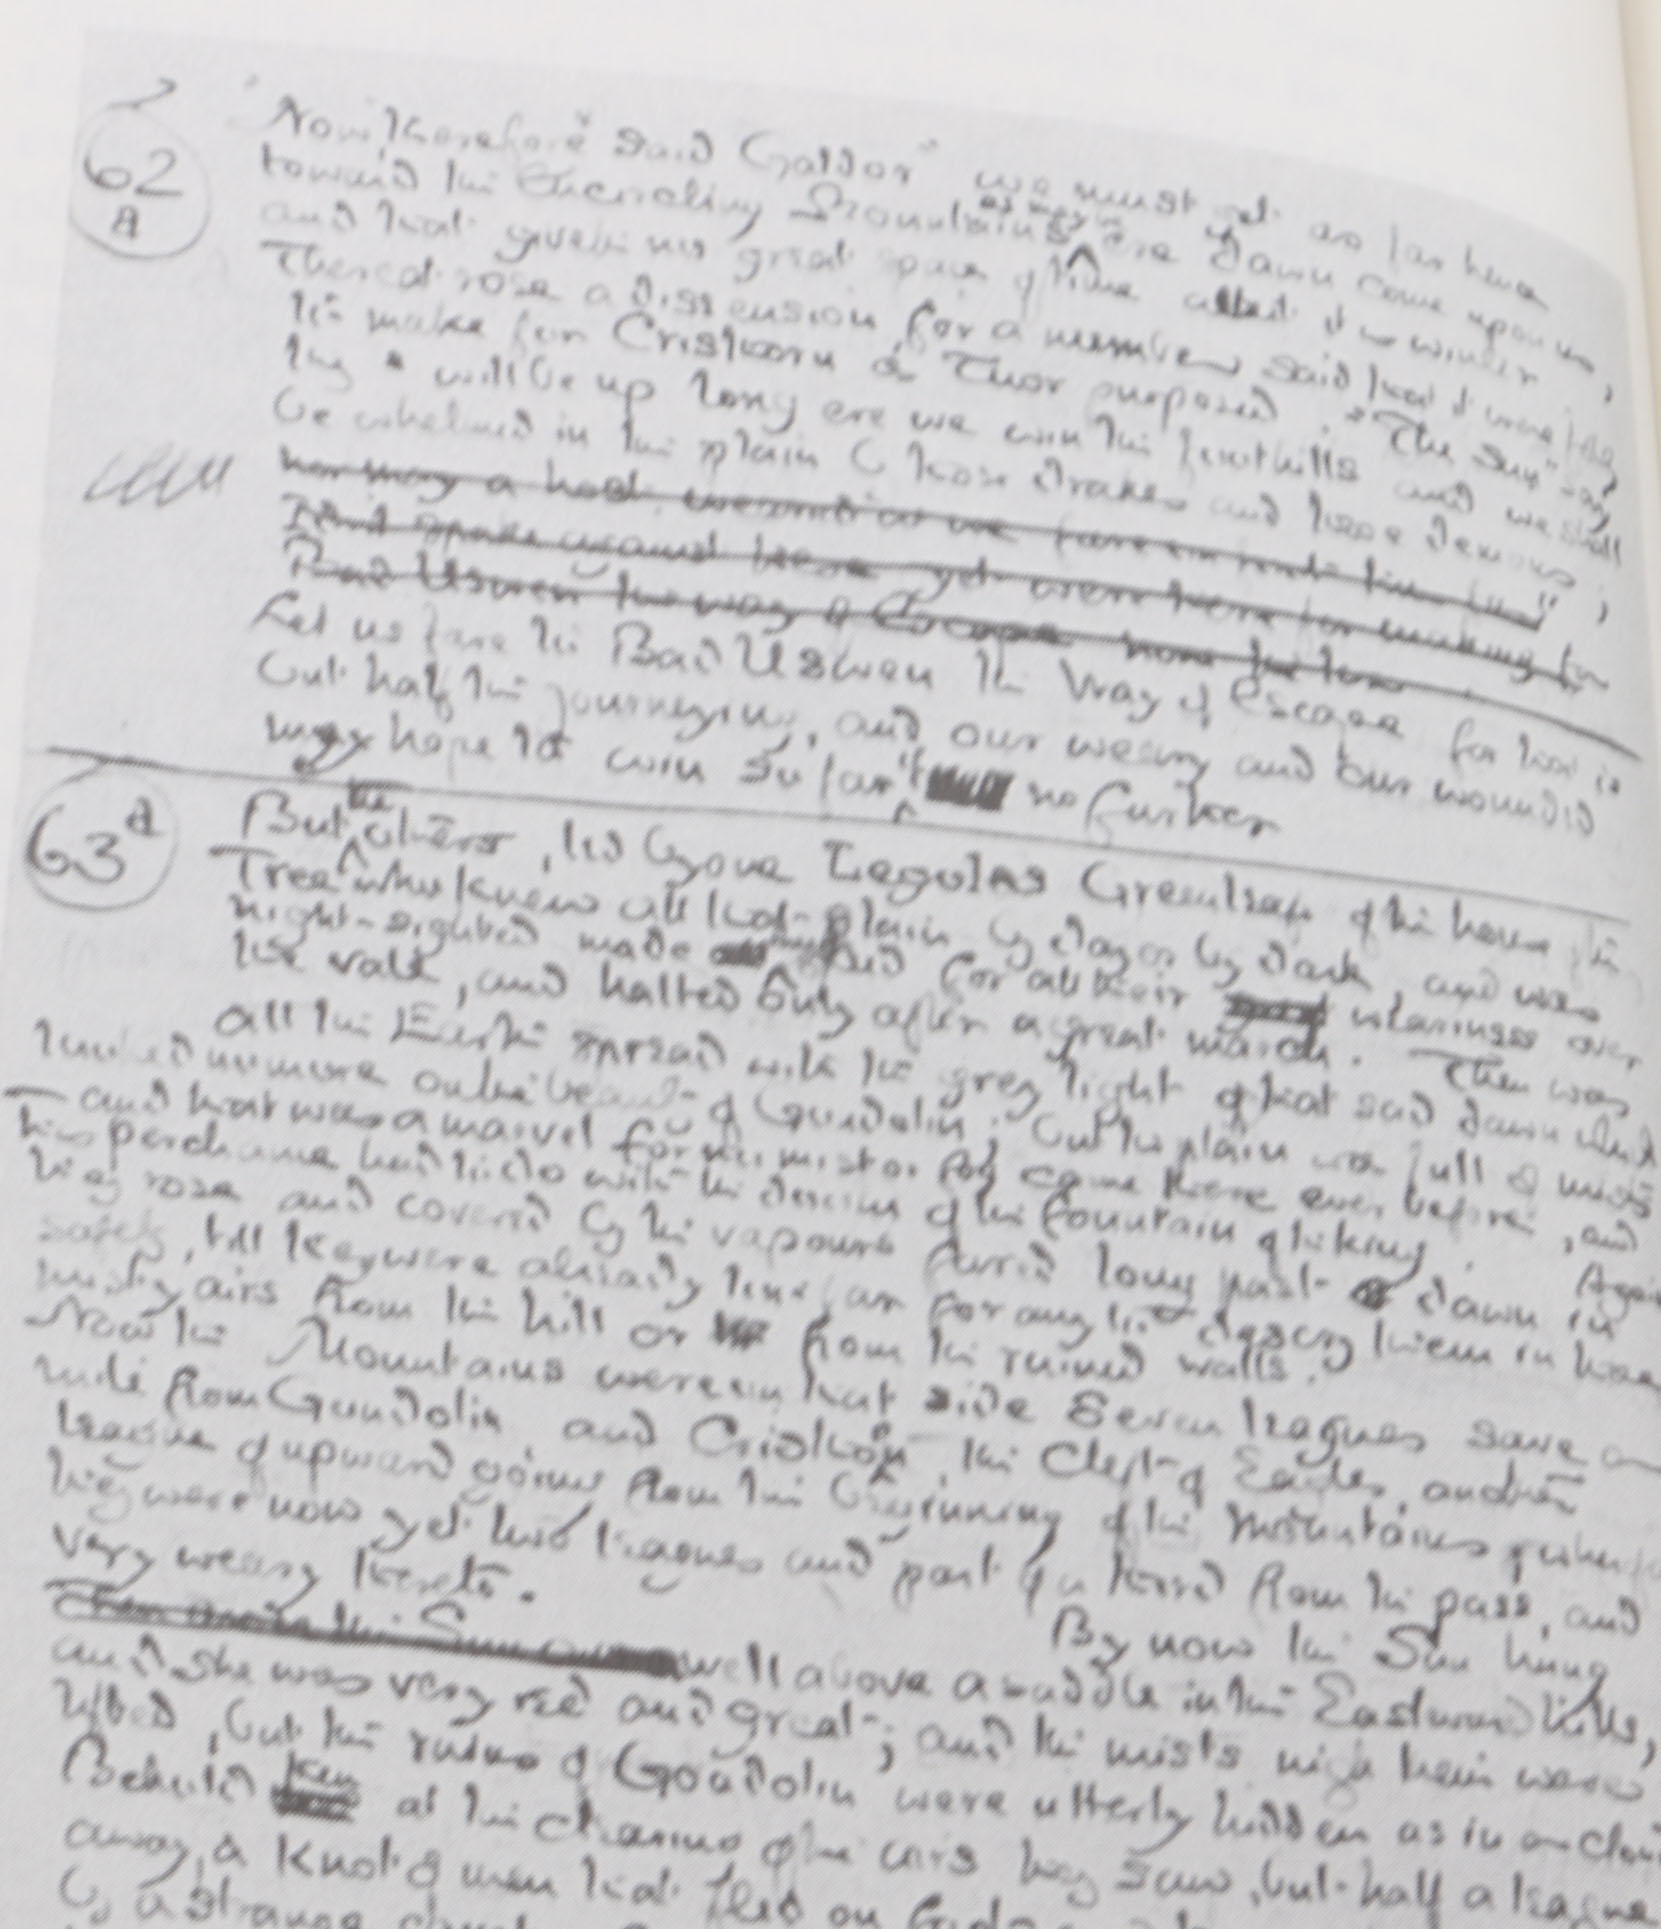 62
A
"Now therefore" said Galdor" we must get as far hence
toward the Encircling Mountains as may be ere dawn come upon us,
and that giveth no great space of time albeit it is winter
Thereat rose a dissension, for a number said that it were folly
to make for Cristhorn as Tuor purposed. "The Sun" say
they "will be up long ere we win the foothills and we shall
be whelmed in the plain by those drakes and those demons;
Let us fare to Bad Uswen the Way of Escape for that is
but half the journeying, and our weary and our wounded
may hope to win so far if no further
63 A
But the others, led by one Legolas Greenleaf of the house of the
Tree who knew all that plain by day or by dark, and was
night-sighted made for all their weariness over
the vale, and halted only after a great march. Then was
all the Earth spread with the grey light of that sad dawn which
looked no more on the beauty of Gondolin; but the plain was full of mists
— and that was a marvel for no mist or fog came there ever before, and
this perchance had to do with the doom of the fountain of the king. Again
they rose and covered by the vapours fared long past dawn in
safety, till they were already too far for any to descry them in those
misty airs from the hill or from the ruined walls.
Now the Mountains were on that side seven leagues save a
mile from Gondolin, and Cristhorn, the Cleft of Eagles,
league of upward going from the beginning of the Mountains
they were now yet two leagues and part of a third from the pass, and
very weary thereto.
By now the Sun hung
well above a saddle in the Eastward hills,
and she was very red and great; and the mists nigh them were
lifted, but the ruins of Gondolin were utterly hidden as in a cloud
Behold then at the clearing of the airs they saw, but half a league
away, a knot of men that fled on
by a strange